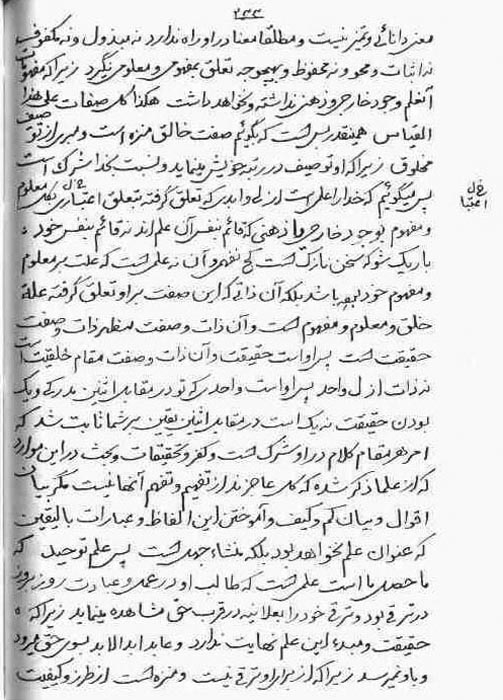 ۲۳۳
معنی دانائی و عینی نیست و مطلقا معنا در او راه ندارد نه مبذول و نه مکفوف
نه اثبات و محو و نه محفوظ و بهیچوجه تعلق بمفهومی و معلومی نگیرد زیرا که مفهومیت
آنعلم وجود خارجی و ذهنی نداشته و نخواهد داشت هکذا کل صفات علی هذا
القیاس همینقدر بس است که بگوئیم صفت خالق منزه است و مبری از توصیف
مخلوق زیرا که او توصیف در رتبه خویش مینماید و نسبت بخدا شرک است
پس میگوئیم که خدا را علمی است ازلی و ابدی که تعلق گرفته بتعلق اعتباری بکل معلوم
و مفهوم بوجود خارجی و ذهنی که قائم بنفس آن علم اند نه قائم بنفس خود
باریک شو که سخن نازک است کج نفهمی و آن نه علمی است که علت بر معلوم
و مفهوم خود بوده باشد بلکه آن ذاتی که این صفت بر او تعلق گرفته علة
خلق و معلوم و مفهوم است و آن ذات و صفت مظهر ذات و صفت
حقیقت است پس او است حقیقت و آن ذات و صفت مقام خلقیت است
نه ذات ازل واحد پس او است واحدی که تو در مقابل اثنین پدرکی و یک
بودن حقیقت نه یک است در مقابل اثنین یقین بر شما ثابت شد که
امر هر مقام کلام در او شرک است و کفر و تحقیقات و بحث در این موارد
که از علما ذکر شده که کل عاجزند از تفهیم و تفهم آنها نیست مگر بیان
اقوال و بیان کم و کیف و آموختن این الفاظ و عبارات بالیقین
که عنوان علم نخواهد بود بلکه منشاء جهل است پس علم توحید که
ما حصل ما است علمی است که طالب او در عمل و عبادت روز بروز
در ترقی بود و ترقی خود را بعلانیه در قرب حق مشاهده مینماید زیرا که
حقیقت و مبدء این علم نهایت ندارد و عابد ابد الابد بسوی حق میرود
و باو نمیرسد زیرا که از برای او ترقی نیست و منزه است از طرز و کیفیت
اعتبا